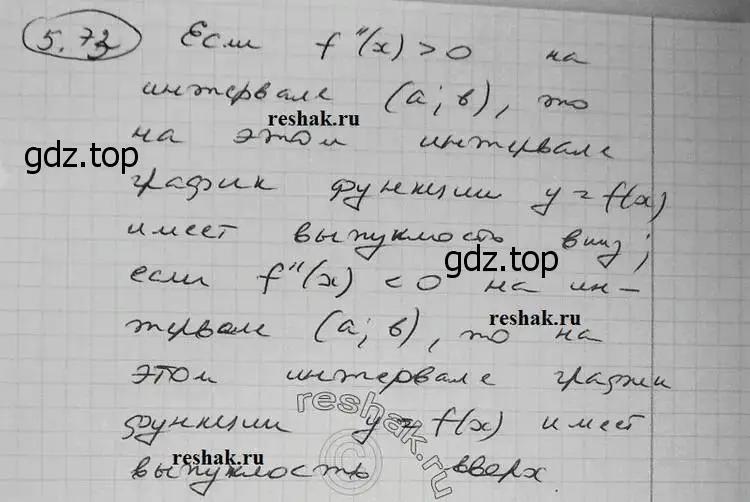 5.73 Если f''(x) > 0 на
интервале (a; в), то
reshak.ru
на этом интервале
gdz.top
график функции y = f(x)
имеет выпуклость вниз;
gdz.top
если f''(x) < 0 на ин-
reshak.ru
тервале (a; в), то на
этом интервале график
reshak.ru
функции y = f(x) имеет
reshak.ru
выпуклость вверх